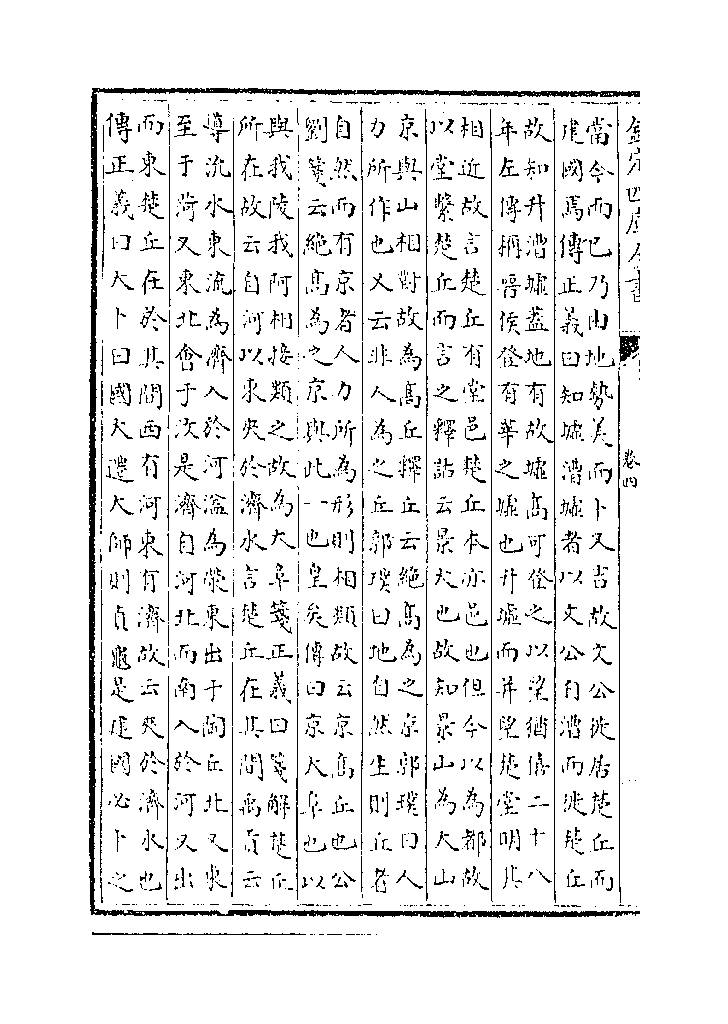 欽定四庫全書
卷四
當今而已乃由地勢美而卜又吉故文公徙居楚丘而
建國焉傳正義曰知墟漕墟者以文公自漕而徙楚丘
故知升漕墟蓋地有故墟高可登之以望猶僖二十八
年左傳稱晉侯登有華之墟也升墟而并望楚堂明其
相近故言楚丘有堂邑楚丘本亦邑也但今以為都故
以堂繫楚丘而言之釋詁云景大也故知景山為大山
京與山相對故為高丘釋丘云絶高為之京郭璞曰人
力所作也又云非人為之丘郭璞曰地自然生則丘者
自然而有京者人力所為形則相類故云京高丘也公
劉箋云絶高為之京與此一也皇矣傳曰京大阜也以
與我陵我阿相接類之故為大阜箋正義曰箋解楚丘
所在故云自河以東夾於濟水言楚丘在其間禹貢云
導沇水東流為濟入於河溢為滎東出于陶丘北又東
至于菏又東北會于汶是濟自河北而南入於河又出
而東楚丘在於其間西有河東有濟故云夾於濟水也
傳正義曰大卜曰國大遷大師則貞龜是建國必卜之